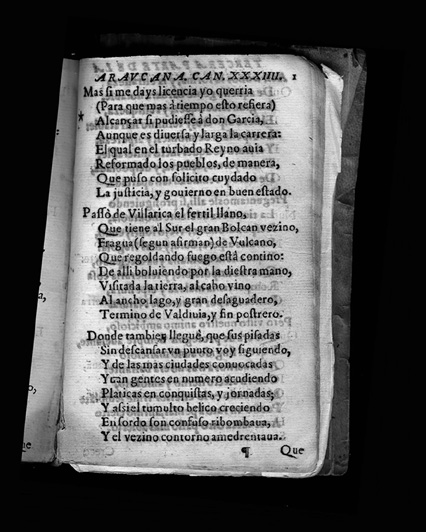 ARAVCANA, CAN. XXXIIII. 1
Mas si me days licencia yo querria
(Para que mas à tiempo esto refiera)
Alcançar si pudiesse à don Garcia,
Aunque es diuersa y larga la carrera:
El qual en el turbado Reyno auia
Reformado los pueblos, de manera,
Que puso con solicito cuydado
La justicia, y gouierno en buen estado.
Passò de Villarica el fertil llano,
Que tiene al Sur el gran Bolcan vezino,
Fragua (segun afirman) de Vulcano,
Que regoldando fuego està contino:
De alli boluiendo por la diestra mano,
Visitada la tierra, al cabo vino
Al ancho lago, y gran desaguadero,
Termino de Valdiuia, y fin postrero.
Donde tambien lleguè, que sus pisadas
Sin descansar vn punto voy siguiendo,
Y de las mas ciudades conuocadas
Yuan gentes en numero acudiendo
Platicas en conquistas, y jornadas;
Y assi el tumulto belico creciendo
En sordo son confuso ribombaua,
Y el vezino contorno amedrentaua.
¶ Que